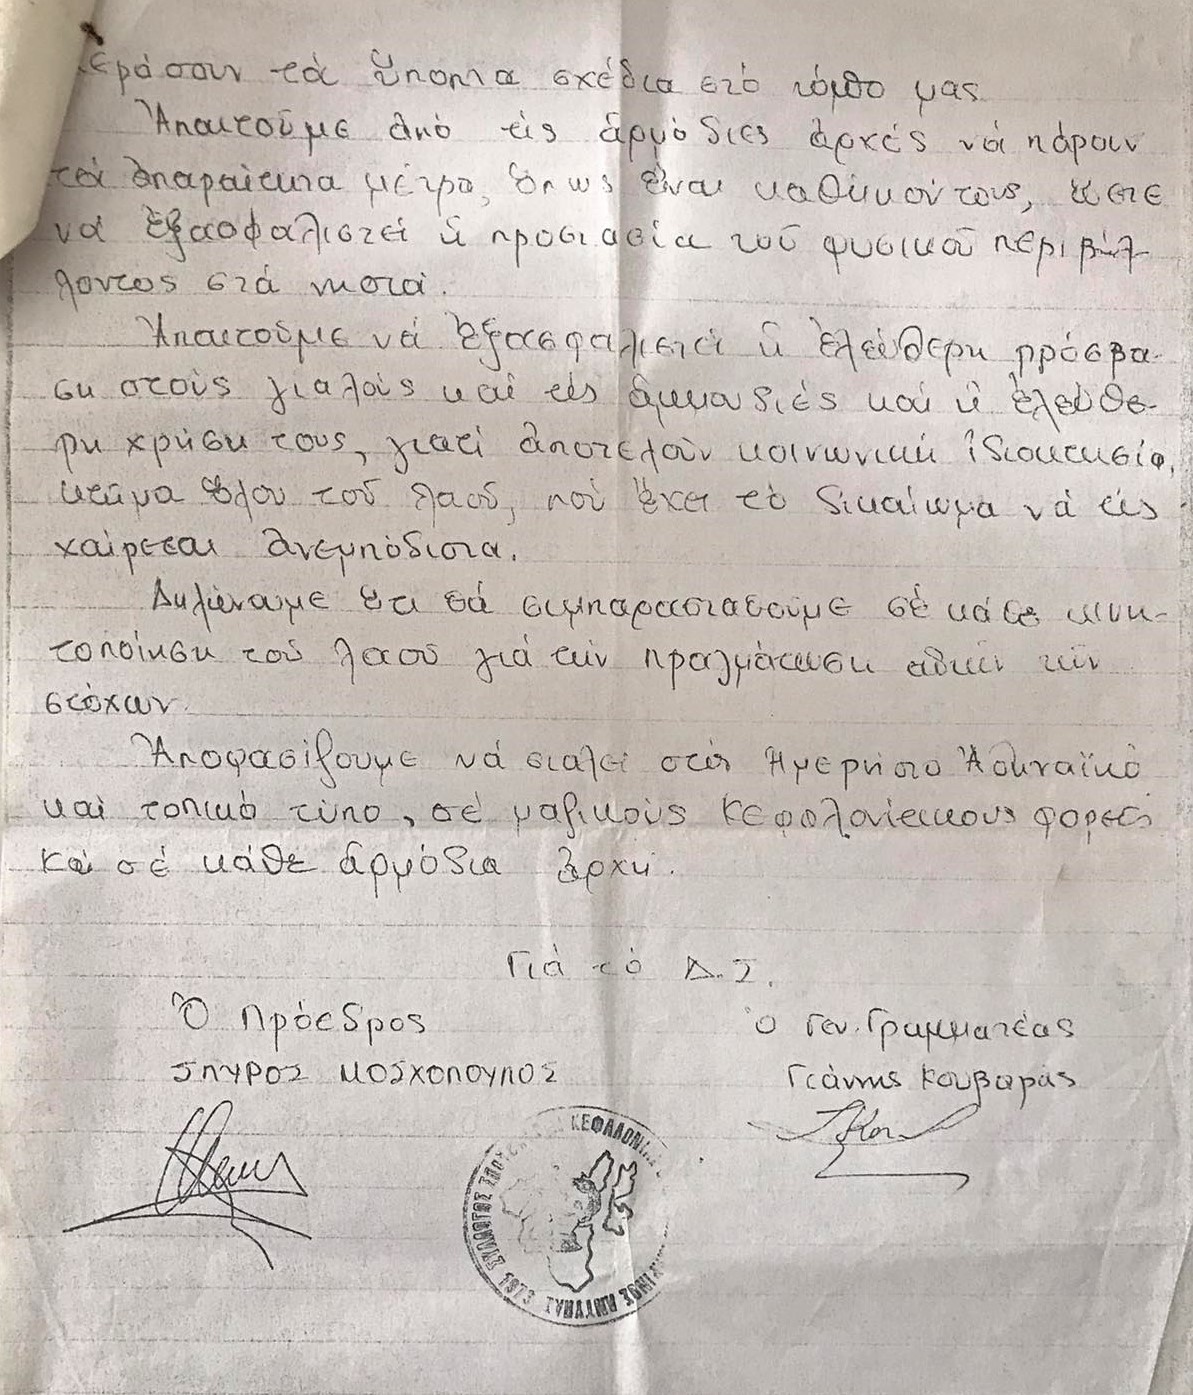 περάσουν τά ὕποπτα σχέδια στό τόπο μας.
Ἀπαιτοῦμε ἀπό τίς ἁρμόδιες ἀρχές νά πάρουν
τά ἀπαραίτητα μέτρα, ὅπως εἶναι καθῆκον τους, ὥστε
νά ἐξασφαλιστεῖ ἡ προστασία τοῦ φυσικοῦ περιβάλ-
λοντος στά νησιά.
Ἀπαιτοῦμε νά ἐξασφαλιστεῖ ἡ ἐλεύθερη πρόσβα-
ση στούς γιαλούς καί τίς ἀμμουδιές καί ἡ ἐλεύθε-
ρη χρήση τους, γιατί ἀποτελοῦν κοινωνική ἰδιοκτησία,
κτῆμα ὅλου τοῦ λαοῦ, πού ἔχει τό δικαίωμα νά τίς
χαίρεται ἀνεμπόδιστα.
Δηλώνουμε ὅτι θά συμπαρασταθοῦμε σέ κάθε κινη-
τοποίηση τοῦ λαοῦ γιά τήν πραγμάτωση αὐτῶν τῶν
στόχων.
Ἀποφασίζουμε νά σταλεῖ στόν Ἡμερήσιο Ἀθηναϊκό
καί τοπικό τύπο, σέ μαζικούς Κεφαλονίτικους φορεῖς
καί σέ κάθε ἁρμόδια ἀρχή.
Γιά τό Δ.Σ.
Ὁ Πρόεδρος
ΣΠΥΡΟΣ ΜΟΣΧΟΠΟΥΛΟΣ
Ὁ Γεν. Γραμματέας
Γιάννης Κουβαράς
ΣΥΛΛΟΓΟΣ ΚΕΦΑΛΟΝΙΑΣ ΑΜΥΝΑΣ 1975